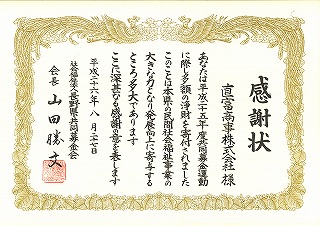 感謝状
直富商事株式会社 様
あなたは平成二十五年度共同募金運動
に際し多額の浄財を寄付されました
このことは本県の民間社会福祉事業の
大きな力となり発展向上に寄与する
ところ多大であります
ここに深甚なる感謝の意を表します
平成二十六年 八月二十七日
社会福祉法人長野県共同募金会
会長 山田勝文